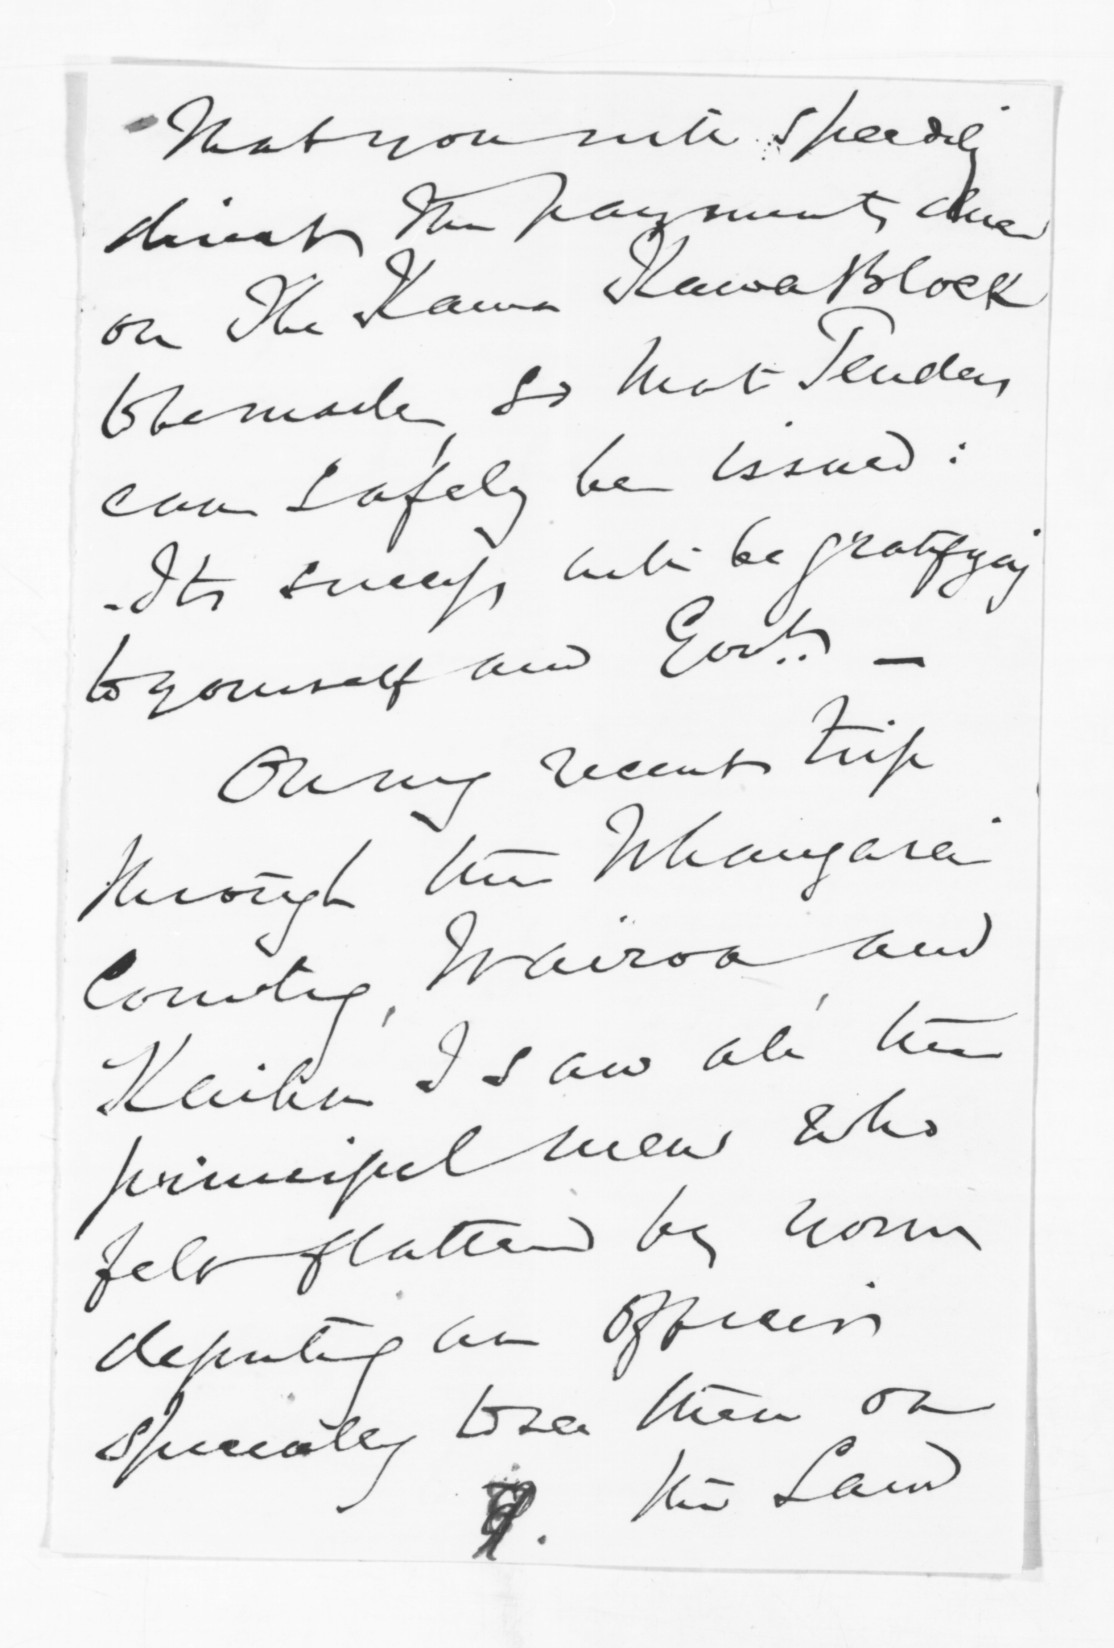 that you will speedily
direct the payments due
on The Kawa Kawa Block
to be made, so that Tenders
can safely be issued:
Its success will be gratifying
to yourself and Govt. —
On my recent trip
through the Whangarei
County, Wairoa and
Kaihu I saw all the
principal men who
felt flattered by your
deputing an officer
specially to see them on
the Land